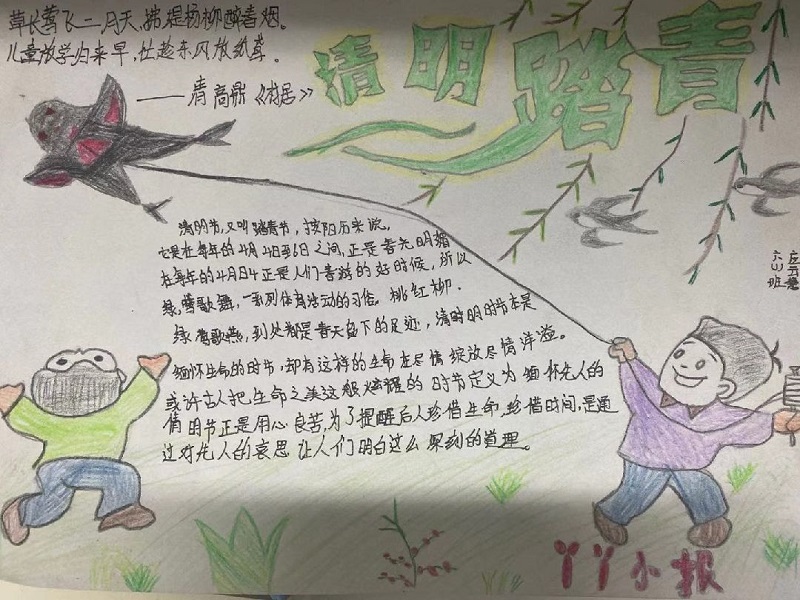 草长莺飞二月天,拂堤杨柳醉春烟。
儿童放学归来早,忙趁东风放纸鸢。
——清 高鼎《村居》
清明踏青
清明节,又叫踏青节,按阳历来说,
它是在每年的4月4日至6日之间,正是春光明媚
在每年的4月日4正是人们春游的好时候,所以
绿,莺歌舞,一系列体育活动的习俗,桃红柳.
绿莺歌燕,到处都是春天留下的足迹,清时明时节本是
缅怀生命的时节,却有这样的生命在尽情绽放尽情洋溢。
或许古人把生命之美这般辉耀的时节定义为缅怀先人的
清明节正是用心良苦,为了提醒后人珍惜生命,珍惜时间,是通
过对先人的哀思让人们明白这么深刻的道理。
六三班
丫丫小报